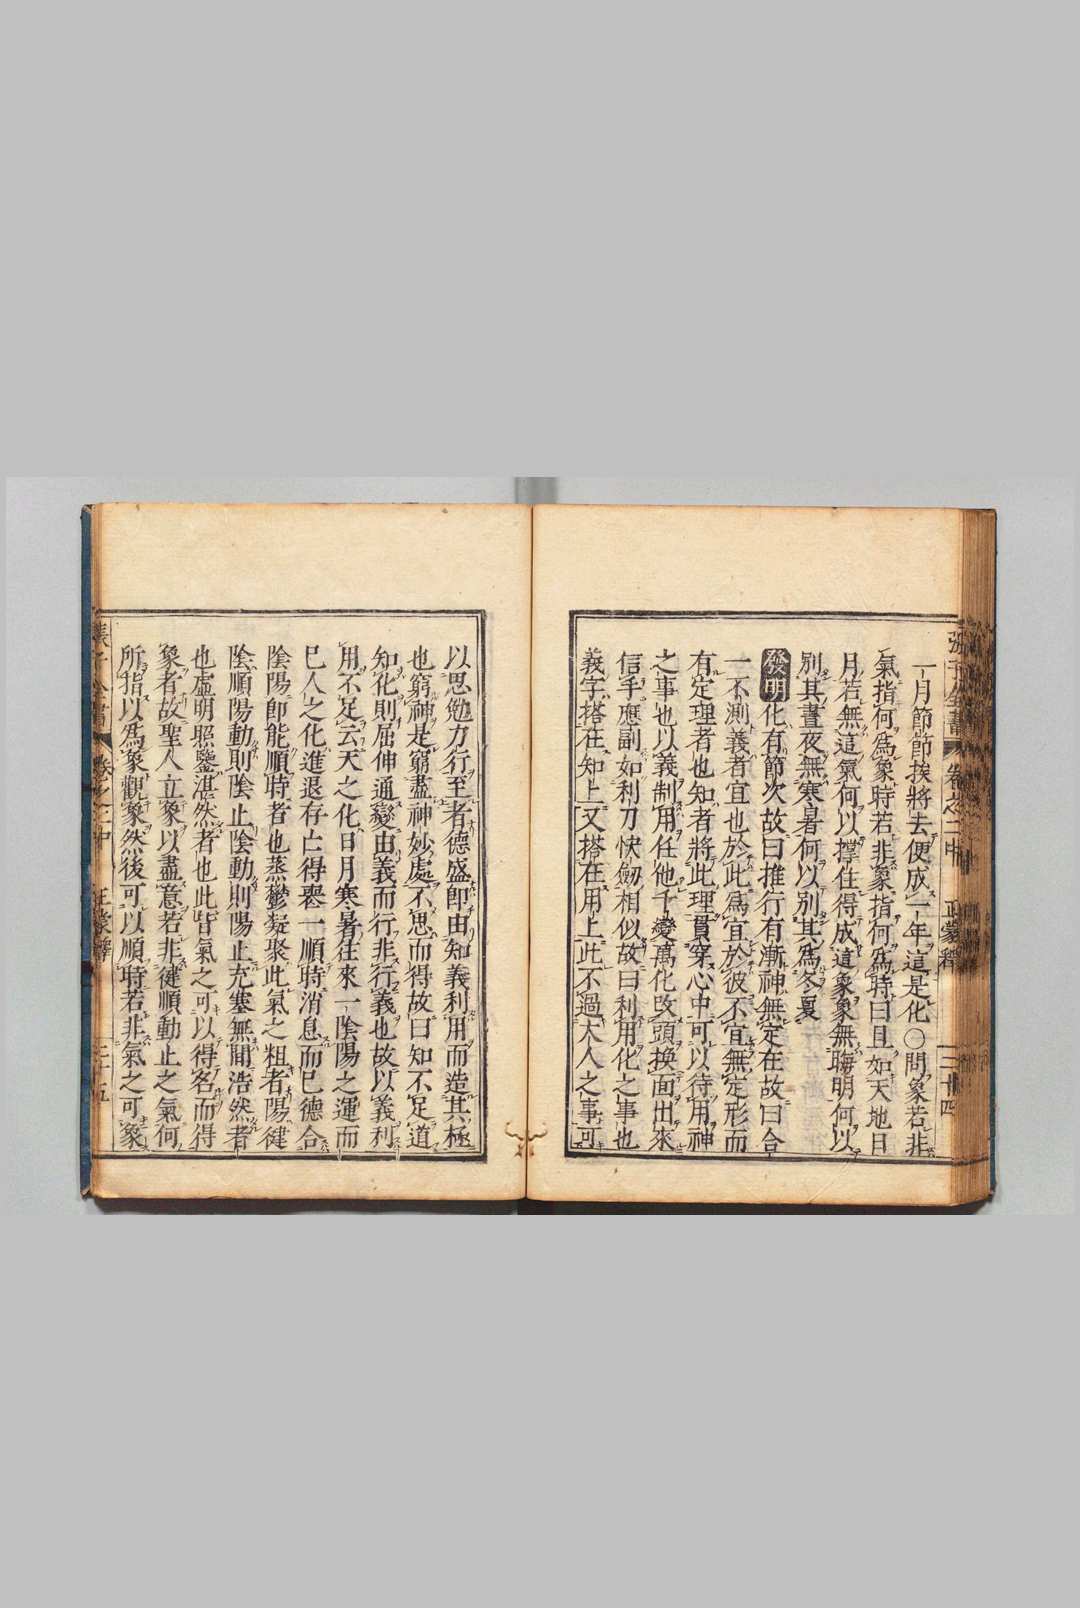 張子全書 卷之二中 正蒙釋 三十四
一月節節挨將去便成一年這是化〇問象若非
氣指何爲象時若非象指何爲時曰且如天地日
月若無這氣何以撑住得成這象象無晦明何以
別其晝夜無寒暑何以別其爲冬夏
發明化有節次故曰推行有漸神無定在故曰合
一不測義者宜也於此爲宜於彼不宜無定形而
有定理者也知者將此理貫穿心中可以待用神
之事也以義制用任他千變萬化改頭換面出來
信手應副如利刀快劒相似故曰利用化之事也
義字搭在知上又搭在用上此不過大人之事可
以思勉力行至者德盛卽由知義利用而造其極
也窮神是窮盡神妙處不思而得故曰知不足道
知化則屈伸通變由義而行非行義也故以義利
用不足云天之化日月寒暑往來一陰陽之運而
已人之化進退存亡得喪一順時消息而已德合
陰陽卽能順時者也蒸鬱凝聚此氣之粗者陽健
陰順陽動則陰止陰動則陽止充塞無間浩然者
也虛明照鑒湛然者也此皆氣之可以得名而得
象者故聖人立象以盡意若非健順動止之氣何
所指以爲象觀象然後可以順時若非氣之可象
張子全書 卷之二中 正蒙釋 三十五